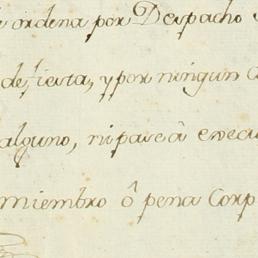 ordena por Despacho
de fiesta, y por ningun
alguno, ni pase â execu
miembro ô pena Corp